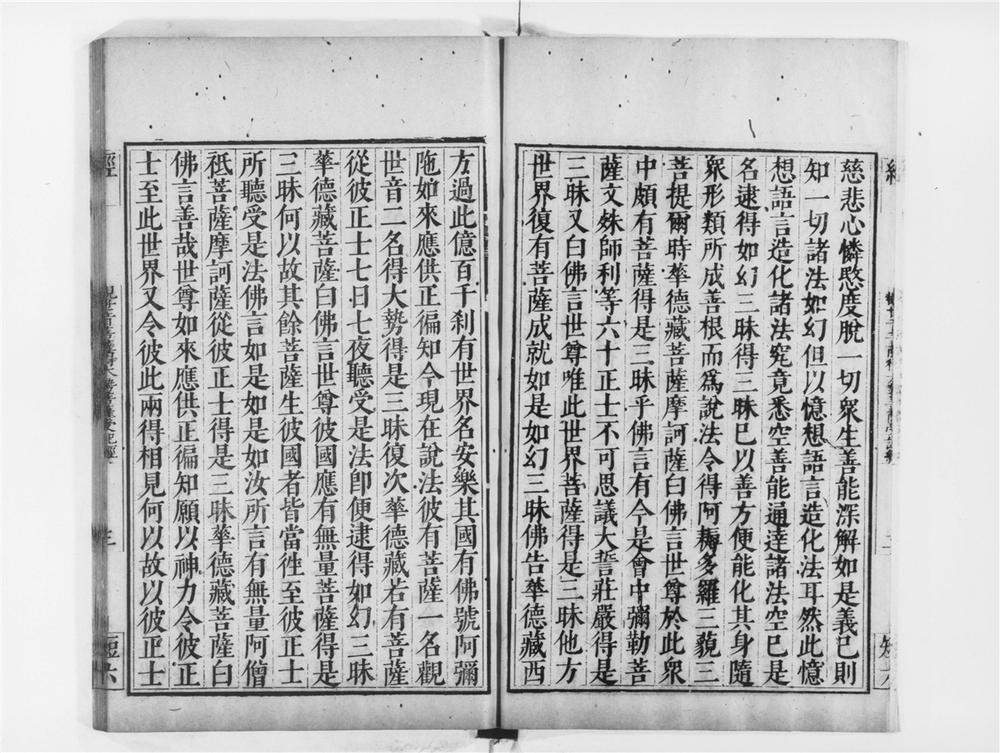 慈悲心憐愍度脫一切衆生善能深解如是義已則
知一切諸法如幻但以憶想語言造化法耳然此憶
想語言造化諸法究竟悉空善能通達諸法空已是
名逮得如幻三昧得三昧已以善方便能化其身隨
衆形類所成善根而爲說法令得阿耨多羅三藐三
菩提爾時華德藏菩薩摩訶薩白佛言世尊於此衆
中頗有菩薩得是三昧乎佛言有今是會中彌勒菩
薩文殊師利等六十正士不可思議大誓莊嚴得是
三昧又白佛言世尊唯此世界菩薩得是三昧他方
世界復有菩薩成就如是如幻三昧佛告華德藏西
方過此億百千刹有世界名安樂其國有佛號阿彌
陁如來應供正徧知今現在說法彼有菩薩一名觀
世音二名得大勢得是三昧復次華德藏若有菩薩
從彼正士七日七夜聽受是法卽便逮得如幻三昧
華德藏菩薩白佛言世尊彼國應有無量菩薩得是
三昧何以故其餘菩薩生彼國者皆當徃至彼正士
所聽受是法佛言如是如是如汝所言有無量阿僧
祇菩薩摩訶薩從彼正士得是三昧華德藏菩薩白
佛言善哉世尊如來應供正徧知願以神力令彼正
士至此世界又令彼此兩得相見何以故以彼正士
經
三
短六